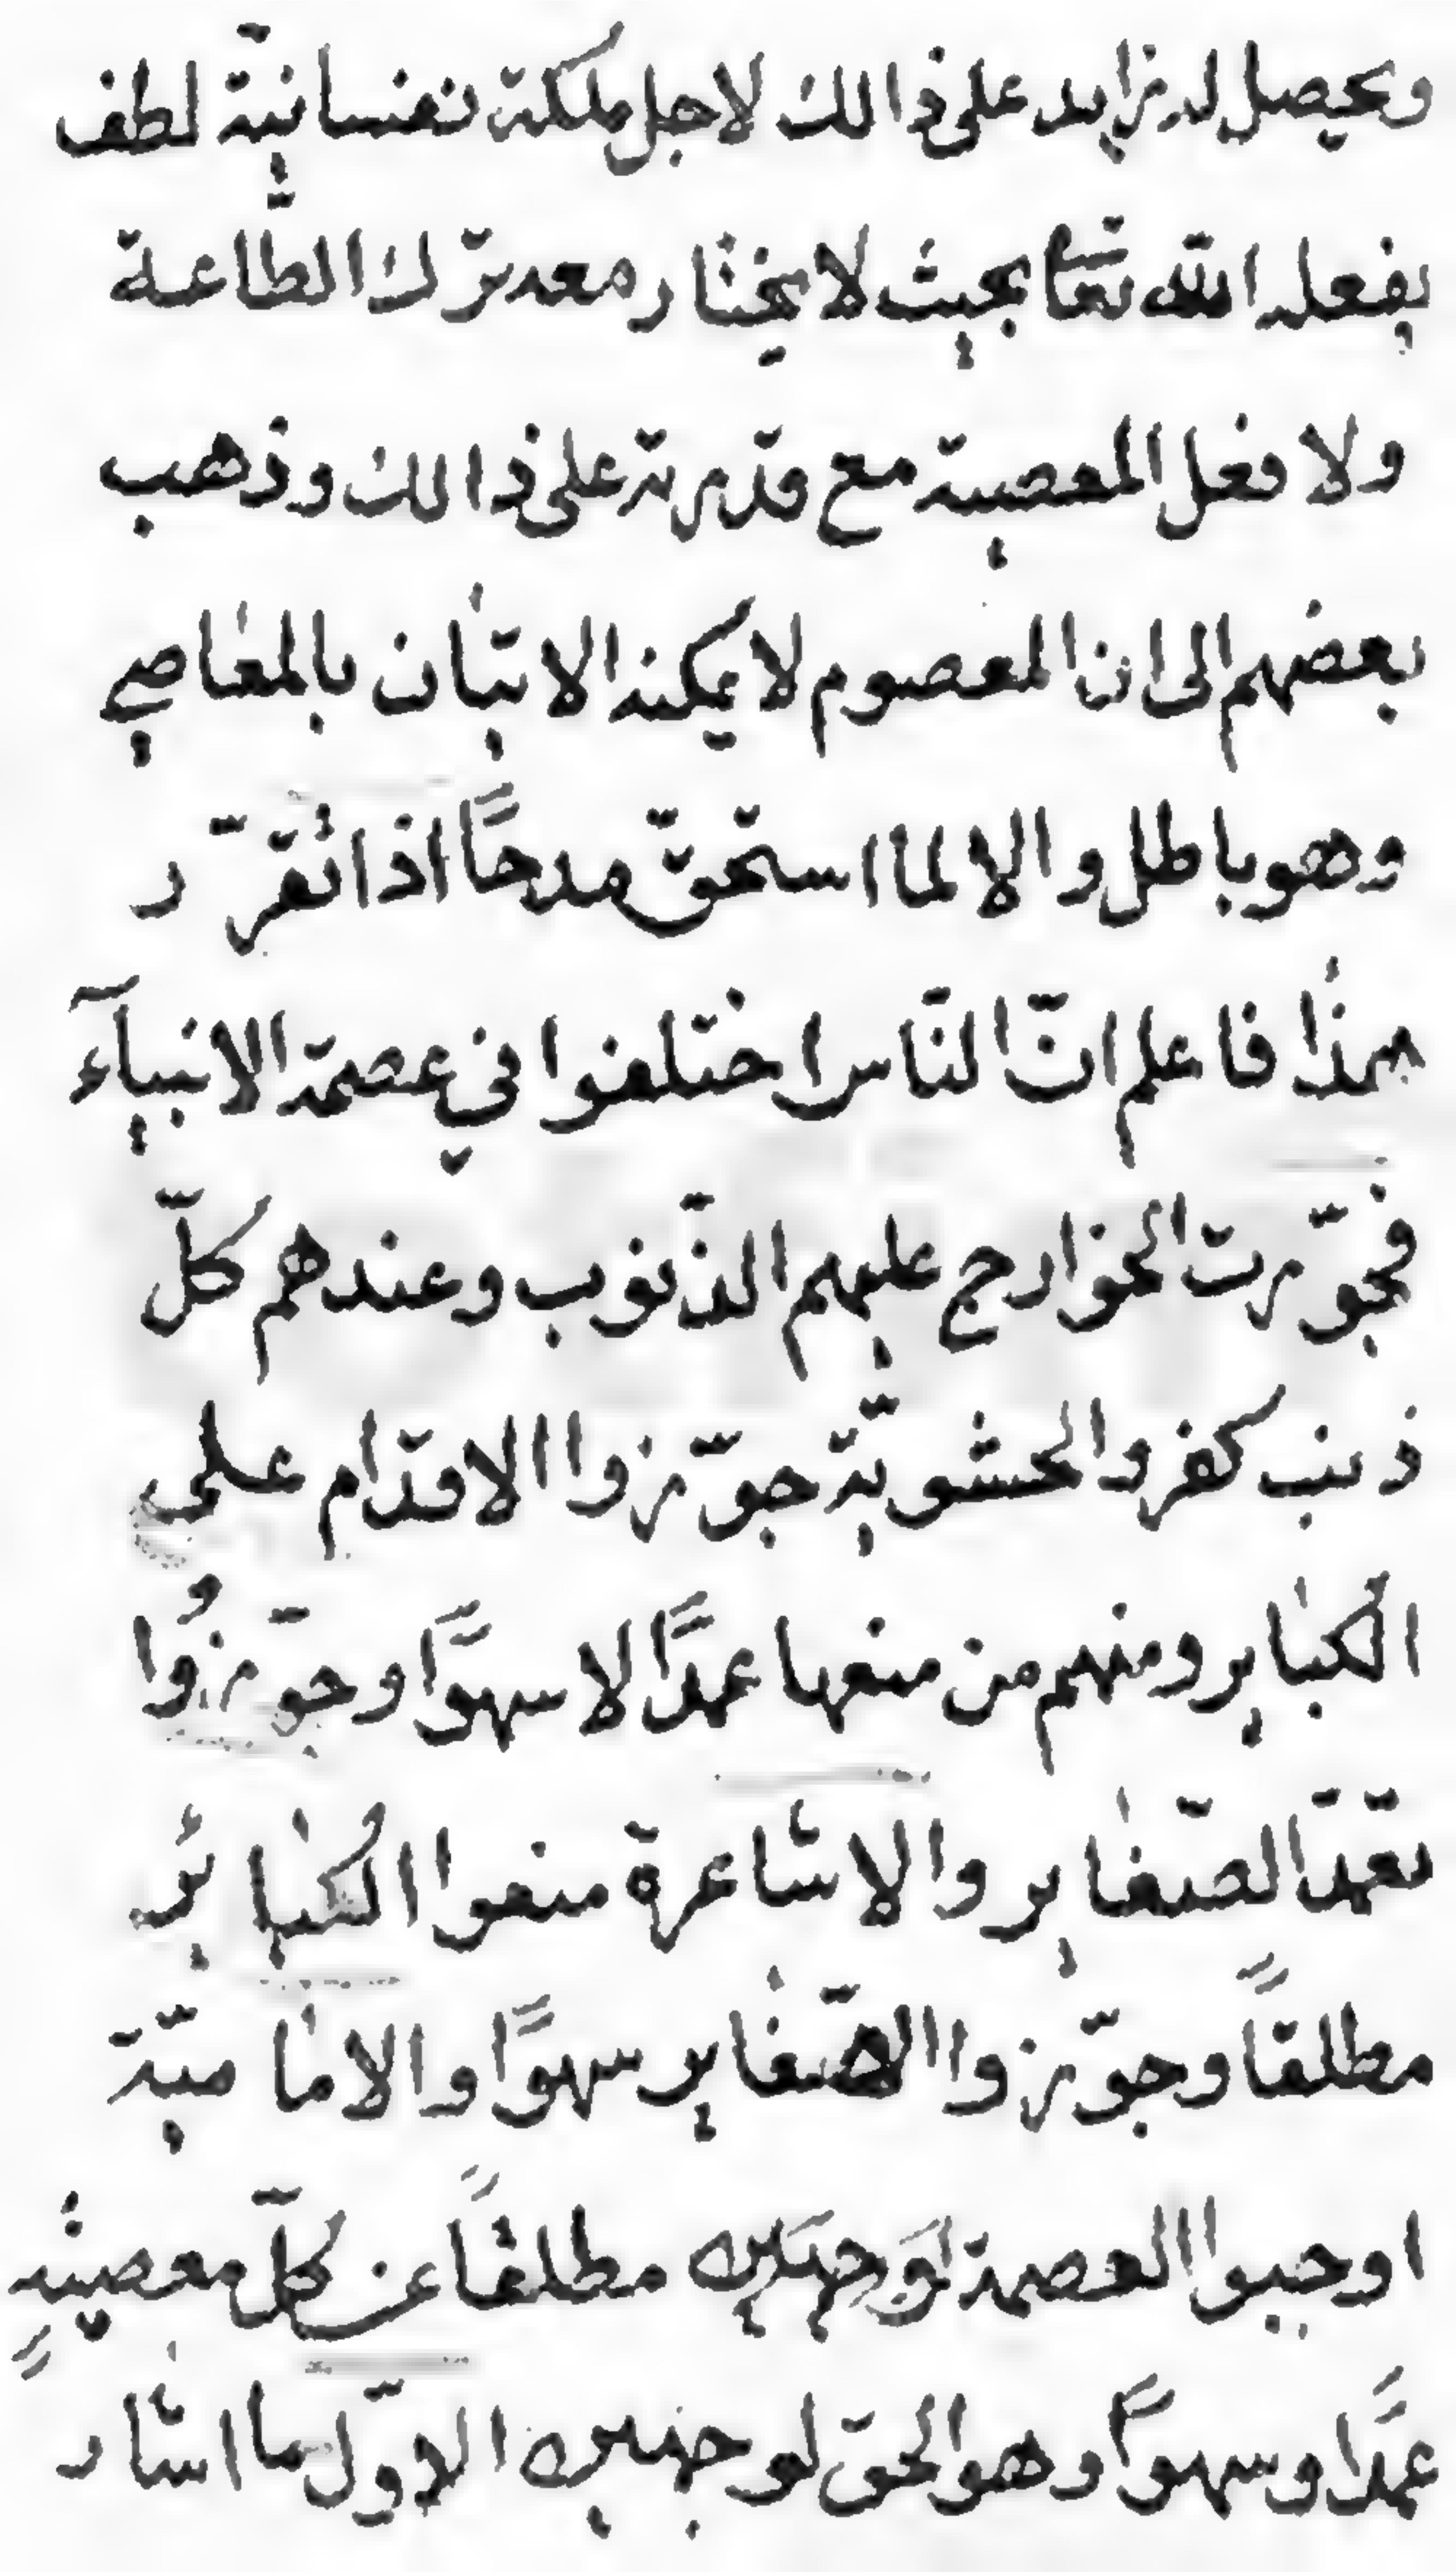 ويحصل له زايد على ذالك لاجل ملكة نفسانيّة لطف
يفعله الله تعا بحيث لا يختار معه ترك الطّاعة
ولا فعل المعصية مع قدرته على ذالك وذهب
بعضهم الى ان المعصوم لا يمكنه الاتيان بالمعاصي
وهو باطل والا لما استحقّ مدحًا اذا تقرّر
هذا فاعلم انّ النّاس اختلفوا في عصمة الانبيآء
فجوّزت الخوارج عليهم الذّنوب وعندهم كلّ
ذنب كفر والحشويّة جوّزوا الاقدام على
الكباير ومنهم من منعها عمدًا لا سهوًا وجوّزُوا
تعمّد الصّغاير والاشاعرة منعوا الكبائر
مطلقًا وجوّزوا الصّغاير سهوًا والاماميّة
اوجبوا العصمة لوجهين مطلقًا عن كلّ معصيةٍ
عمدًا وسهوًا وهو الحقّ لوجهين الاوّل ما اشار